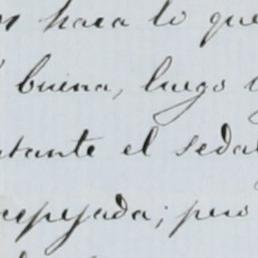 haca lo que
buena, luego
tante el sedal
cepejada; pero